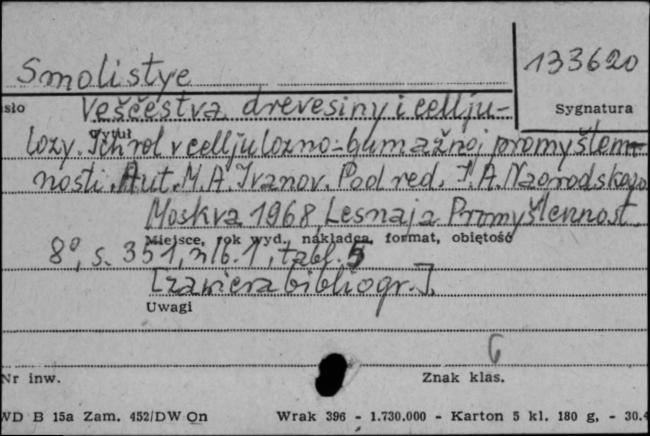 133620
Smolistye
sło
veščestva drevesiny i cellju-
Sygnatura
Tytuł
lozy. Ich rol v celljulozno-bumažnoj promyšlen-
nosti. Aut. M.A. Ivanov. Pod red. I.A. Nagrodskogo
Moskva 1968, Lesnaja Promyšlennost.
Miejsce, rok wyd., nakładca, format, objętość
8°, s. 351, nlb. 1, tabl. 5
[zawiera bibliogr.].
Uwagi
6
Nr inw.
Znak klas.
WD B 15a Zam. 452/DW On
Wrak 396 - 1.730.000 - Karton 5 kl. 180 g, - 30.4